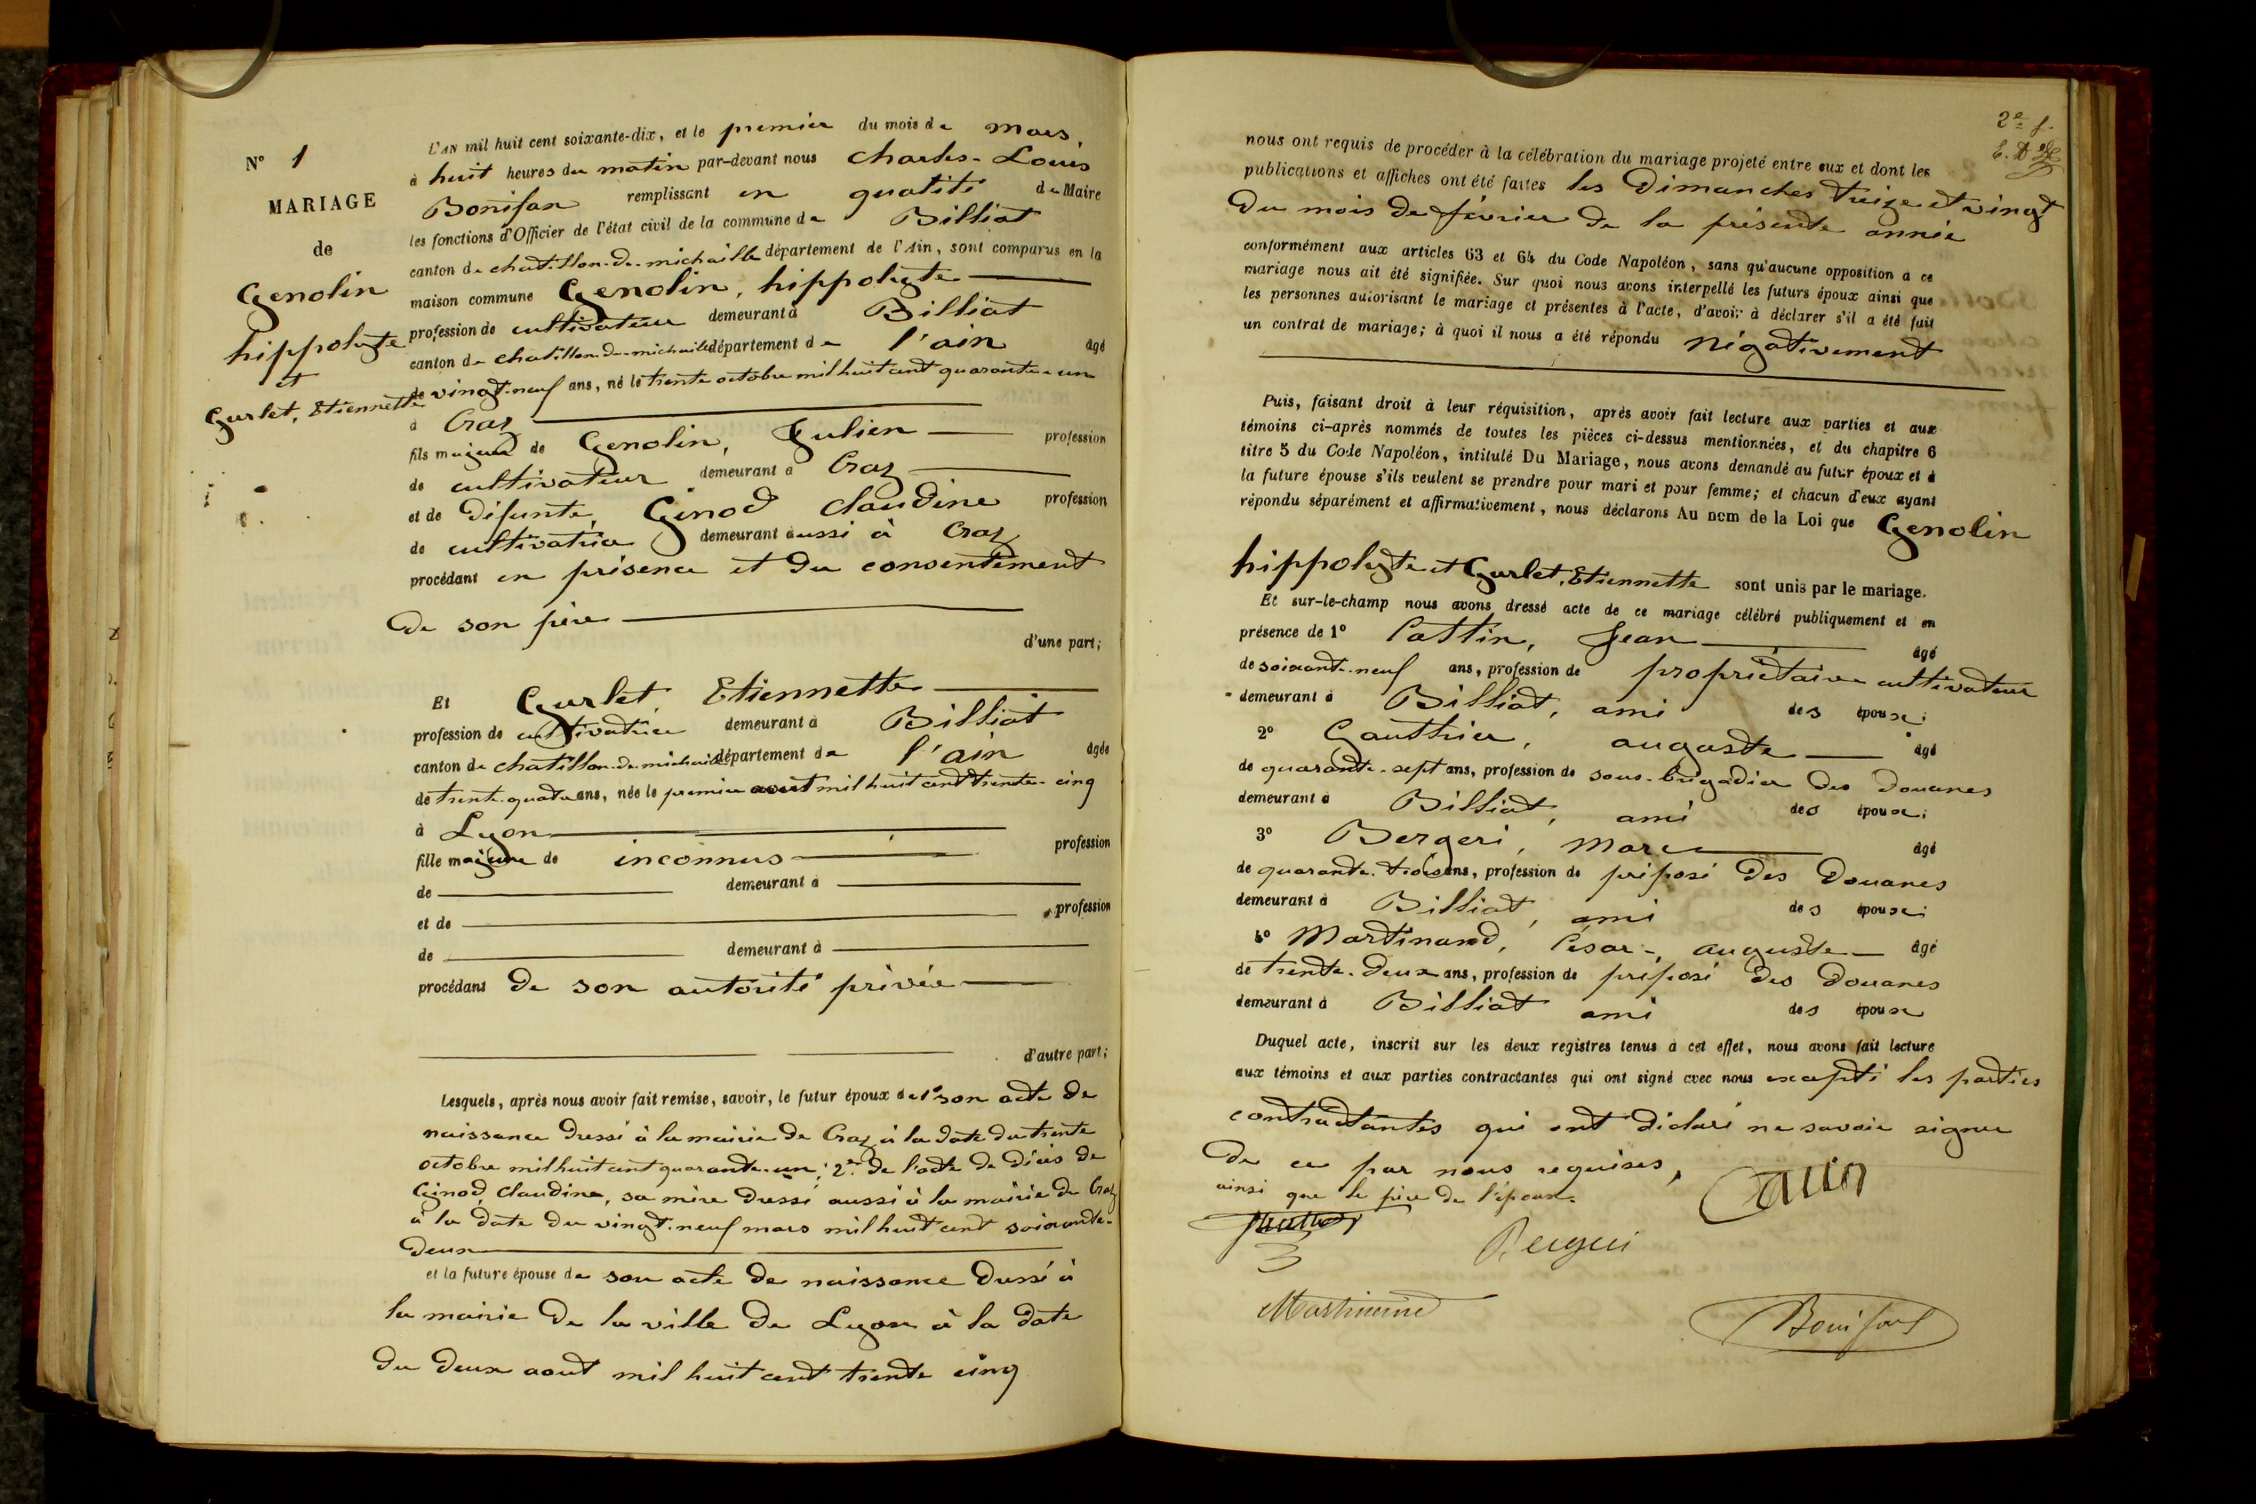 N° 1
MARIAGE
de
Genolin
hippolyte
et
Gurlet, Etiennette
L'AN mil huit cent soixante-dix, et le premier du mois de mars,
à huit heures du matin par-devant nous Charles-Louis
Bonifan remplissant en qualité de Maire
les fonctions d'Officier de l'état civil de la commune de Billiat
canton de chatillon-de-michaille département de l'Ain, sont comparus en la
maison commune Genolin, hippolyte
profession de cultivateur demeurant à Billiat
canton de chatillon-de-michaille département de l'ain âgé
de vingt-neuf ans, né le trente octobre mil huit cent quarante-un
à Craz
fils majeur de Genolin, Julien profession
de cultivateur demeurant à Craz
et de défunte, Ginod claudine profession
de cultivatrice demeurant aussi à Craz
procédant en présence et du consentement
de son père
d'une part;
Et Gurlet, Etiennette
profession de cultivatrice demeurant à Billiat
canton de chatillon-de-michaille département de l'ain âgée
de trente-quatre ans, née le premier aout mil huit cent trente-cinq
à Lyon
fille majeure de inconnus profession
de demeurant à
et de profession
de demeurant à
procédant de son autorité privée
d'autre part;
Lesquels, après nous avoir fait remise, savoir, le futur époux de 1° son acte de
naissance dressé à la mairie de Craz à la date du trente
octobre mil huit cent quarante-un; 2° de l'acte de décès de
Ginod, claudine, sa mère dressé aussi à la mairie de Craz
à la date du vingt-neuf mars mil huit cent soixante-
deux
et la future épouse de son acte de naissance dressé à
la mairie de la ville de Lyon à la date
du deux aout mil huit cent trente cinq
2e f.
nous ont requis de procéder à la célébration du mariage projeté entre eux et dont les
publications et affiches ont été faites les Dimanches treize et vingt
du mois de février de la présente année
conformément aux articles 63 et 64 du Code Napoléon, sans qu'aucune opposition a ce
mariage nous ait été signifiée. Sur quoi nous avons interpellé les futurs époux ainsi que
les personnes autorisant le mariage et présentes à l'acte, d'avoir à déclarer s'il a été fait
un contrat de mariage; à quoi il nous a été répondu négativement
Puis, faisant droit à leur réquisition, après avoir fait lecture aux parties et aux
témoins ci-après nommés de toutes les pièces ci-dessus mentionnées, et du chapitre 6
titre 5 du Code Napoléon, intitulé Du Mariage, nous avons demandé au futur époux et à
la future épouse s'ils veulent se prendre pour mari et pour femme; et chacun d'eux ayant
répondu séparément et affirmativement, nous déclarons Au nom de la Loi que Genolin
hippolyte et Gurlet, Etiennette sont unis par le mariage.
Et sur-le-champ nous avons dressé acte de ce mariage célébré publiquement et en
présence de 1° Cattin, Jean âgé
de soixante-neuf ans, profession de propriétaire cultivateur
demeurant à Billiat, ami des époux;
2° Gauthier, auguste âgé
de quarante-sept ans, profession de sous-brigadier des Douanes
demeurant à Billiat, ami des époux;
3° Bergeri, Marc âgé
de quarante-trois ans, profession de préposé des Douanes
demeurant à Billiat, ami des époux;
4° Martinand, César-auguste âgé
de trente-deux ans, profession de préposé des Douanes
demeurant à Billiat ami des époux
Duquel acte, inscrit sur les deux registres tenus à cet effet, nous avons fait lecture
aux témoins et aux parties contractantes qui ont signé avec nous excepté les parties
contractantes qui ont déclaré ne savoir signer
de ce par nous requises,
ainsi que le père de l'époux.
Cattin
Bergeri
Martinand
Bonifant